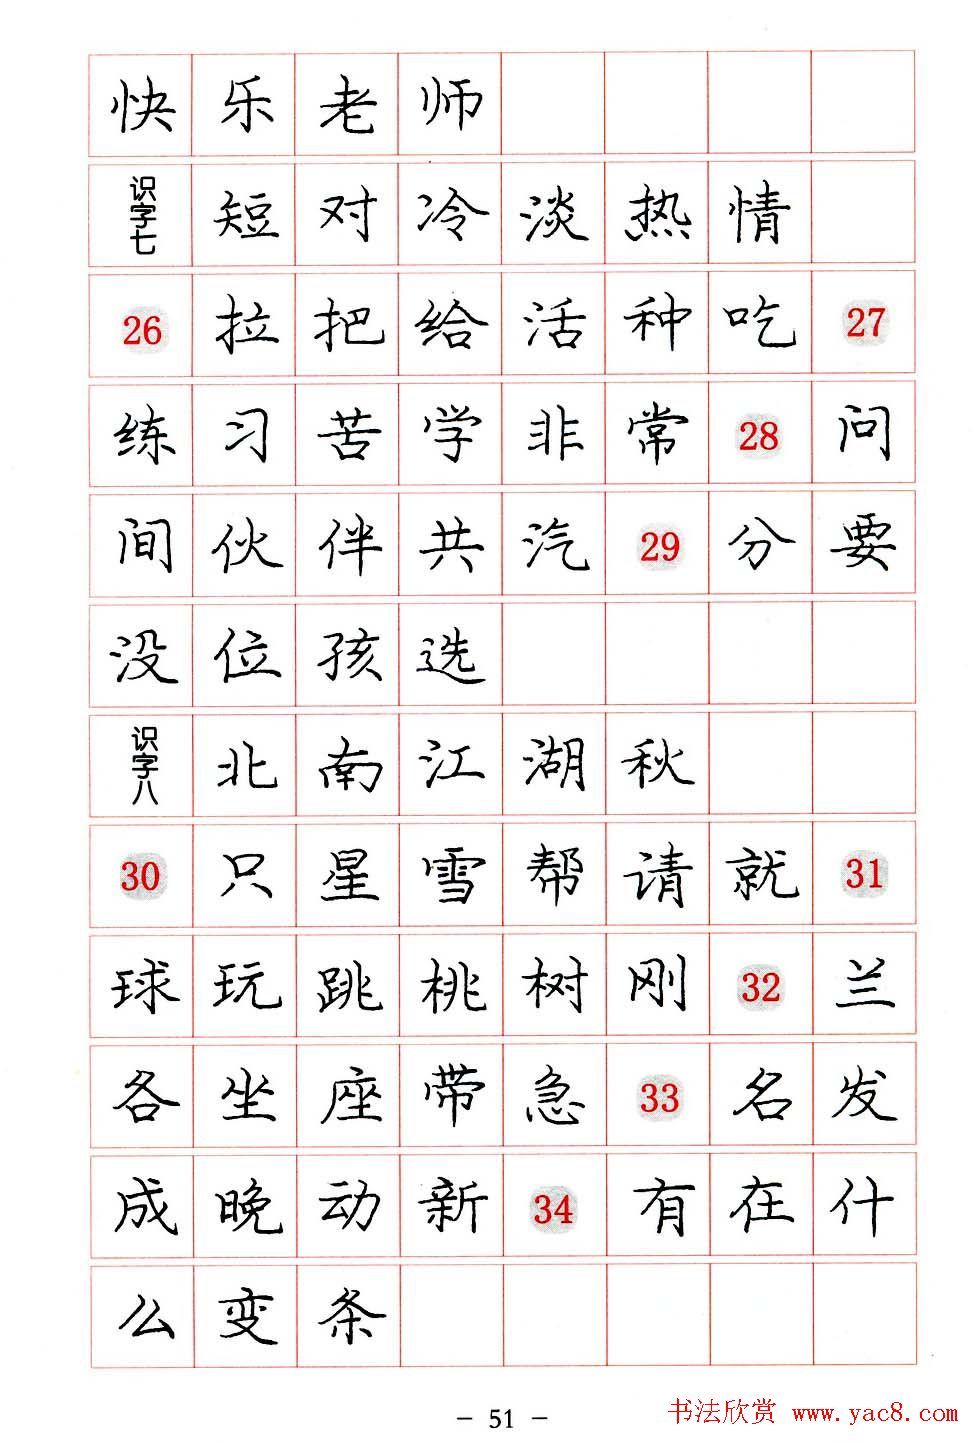 快乐老师
识字七 短对冷淡热情
26 拉把给活种吃 27
练习苦学非常 28 问
间伙伴共汽 29 分要
没位孩选
识字八 北南江湖秋
30 只星雪帮请就 31
球玩跳桃树刚 32 兰
各坐座带急 33 名发
成晚动新 34 有在什
么变条
- 51 -
书法欣赏 www.yac8.com